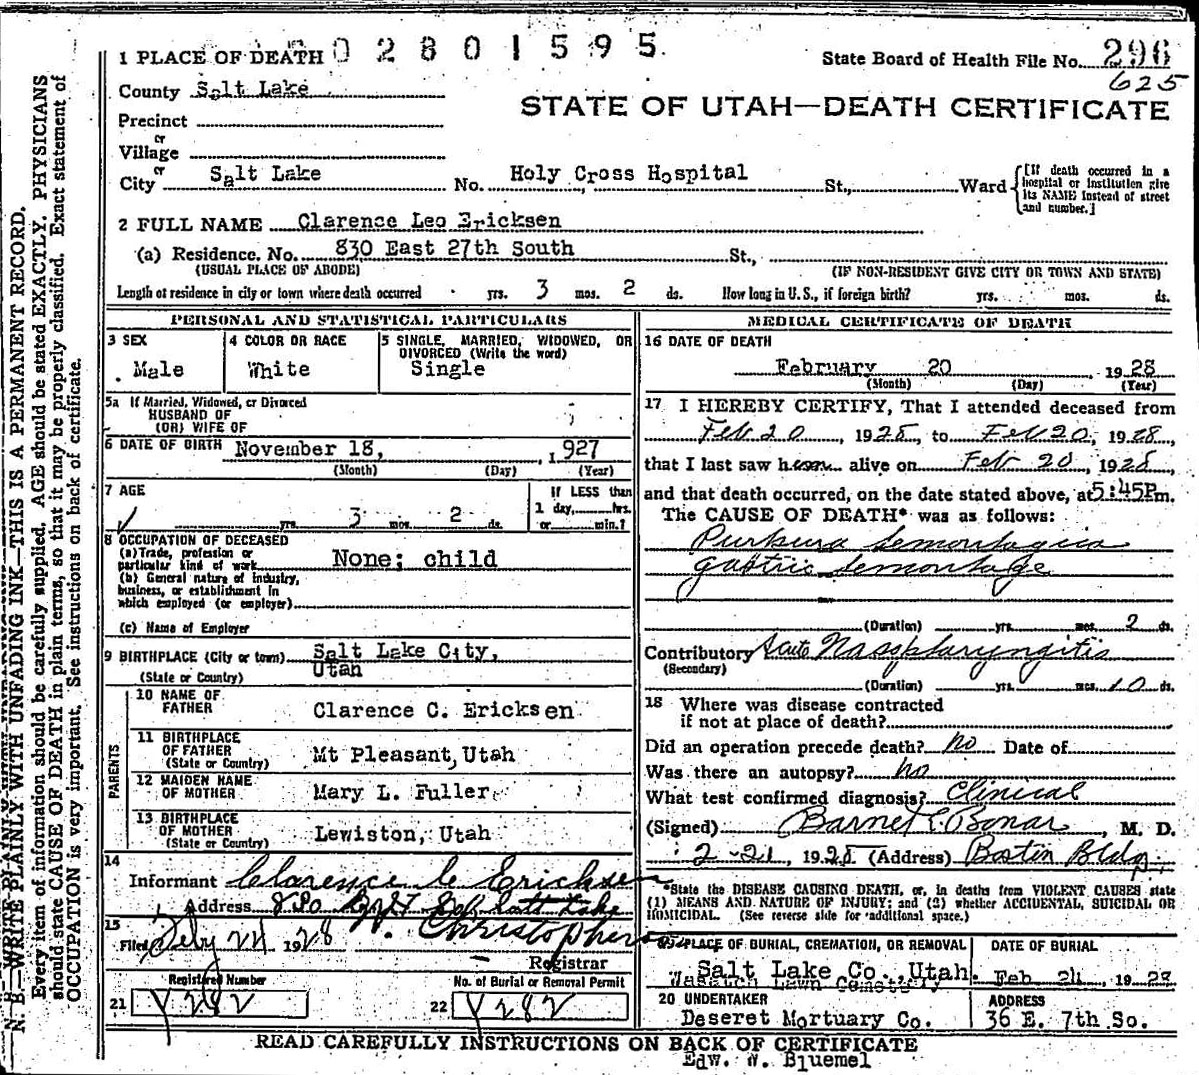 02801595
1 PLACE OF DEATH
State Board of Health File No. 296
625
County Salt Lake
STATE OF UTAH—DEATH CERTIFICATE
Precinct
or
Village
or
City Salt Lake No. Holy Cross Hospital St., Ward
[If death occurred in a
hospital or institution give
its NAME instead of street
and number.]
2 FULL NAME Clarence Leo Ericksen
(a) Residence. No. 830 East 27th South St.,
(USUAL PLACE OF ABODE) (IF NON-RESIDENT GIVE CITY OR TOWN AND STATE)
Length of residence in city or town where death occurred yrs. 3 mos. 2 ds. How long in U. S., if foreign birth? yrs. mos. ds.
PERSONAL AND STATISTICAL PARTICULARS
3 SEX
Male
4 COLOR OR RACE
White
5 SINGLE, MARRIED, WIDOWED, OR
DIVORCED (Write the word)
Single
5a If Married, Widowed, or Divorced
HUSBAND OF
(OR) WIFE OF
6 DATE OF BIRTH November 18, 1927
(Month) (Day) (Year)
7 AGE
yrs. 3 mos. 2 ds.
If LESS than
1 day, hrs.
or min.?
8 OCCUPATION OF DECEASED
(a) Trade, profession or
particular kind of work None; child
(b) General nature of industry,
business, or establishment in
which employed (or employer)
(c) Name of Employer
9 BIRTHPLACE (City or town) Salt Lake City,
Utah
(State or Country)
PARENTS
10 NAME OF
FATHER Clarence C. Ericksen
11 BIRTHPLACE
OF FATHER Mt Pleasant, Utah
(State or Country)
12 MAIDEN NAME
OF MOTHER Mary L. Fuller
13 BIRTHPLACE
OF MOTHER Lewiston, Utah
(State or Country)
14
Informant Clarence C Ericksen
Address 830 East So. Salt Lake
15
Filed Feby 24 1928 Christopherson
Registrar
Registered Number
21 Y282
No. of Burial or Removal Permit
22 Y282
MEDICAL CERTIFICATE OF DEATH
16 DATE OF DEATH
February 20 1928
(Month) (Day) (Year)
17 I HEREBY CERTIFY, That I attended deceased from
Feb 20, 1928, to Feb 20, 1928,
that I last saw him alive on Feb 20, 1928,
and that death occurred, on the date stated above, at 5:45P m.
The CAUSE OF DEATH* was as follows:
Purpura Hemorrhagica
Gastric Hemorrhage
(Duration) yrs. mos. 2 ds.
Contributory Acute Nasopharyngitis
(Secondary)
(Duration) yrs. mos. 10 ds.
18 Where was disease contracted
if not at place of death?
Did an operation precede death? No Date of
Was there an autopsy? No
What test confirmed diagnosis? Clinical
(Signed) Barnet E. Bonar, M. D.
2-21, 1928 (Address) Boston Bldg.
*State the DISEASE CAUSING DEATH, or, in deaths from VIOLENT CAUSES state
(1) MEANS AND NATURE OF INJURY; and (2) whether ACCIDENTAL, SUICIDAL OR
HOMICIDAL. (See reverse side for additional space.)
PLACE OF BURIAL, CREMATION, OR REMOVAL
Salt Lake Co., Utah.
Wasatch Lawn Cemetery
DATE OF BURIAL
Feb 24 1928
20 UNDERTAKER
Deseret Mortuary Co.
ADDRESS
36 E. 7th So.
READ CAREFULLY INSTRUCTIONS ON BACK OF CERTIFICATE
Edw. W. Bluemel
N. B.—WRITE PLAINLY WITH UNFADING INK—THIS IS A PERMANENT RECORD.
Every item of information should be carefully supplied. AGE should be stated EXACTLY. PHYSICIANS
should state CAUSE OF DEATH in plain terms, so that it may be properly classified. Exact statement of
OCCUPATION is very important. See instructions on back of certificate.